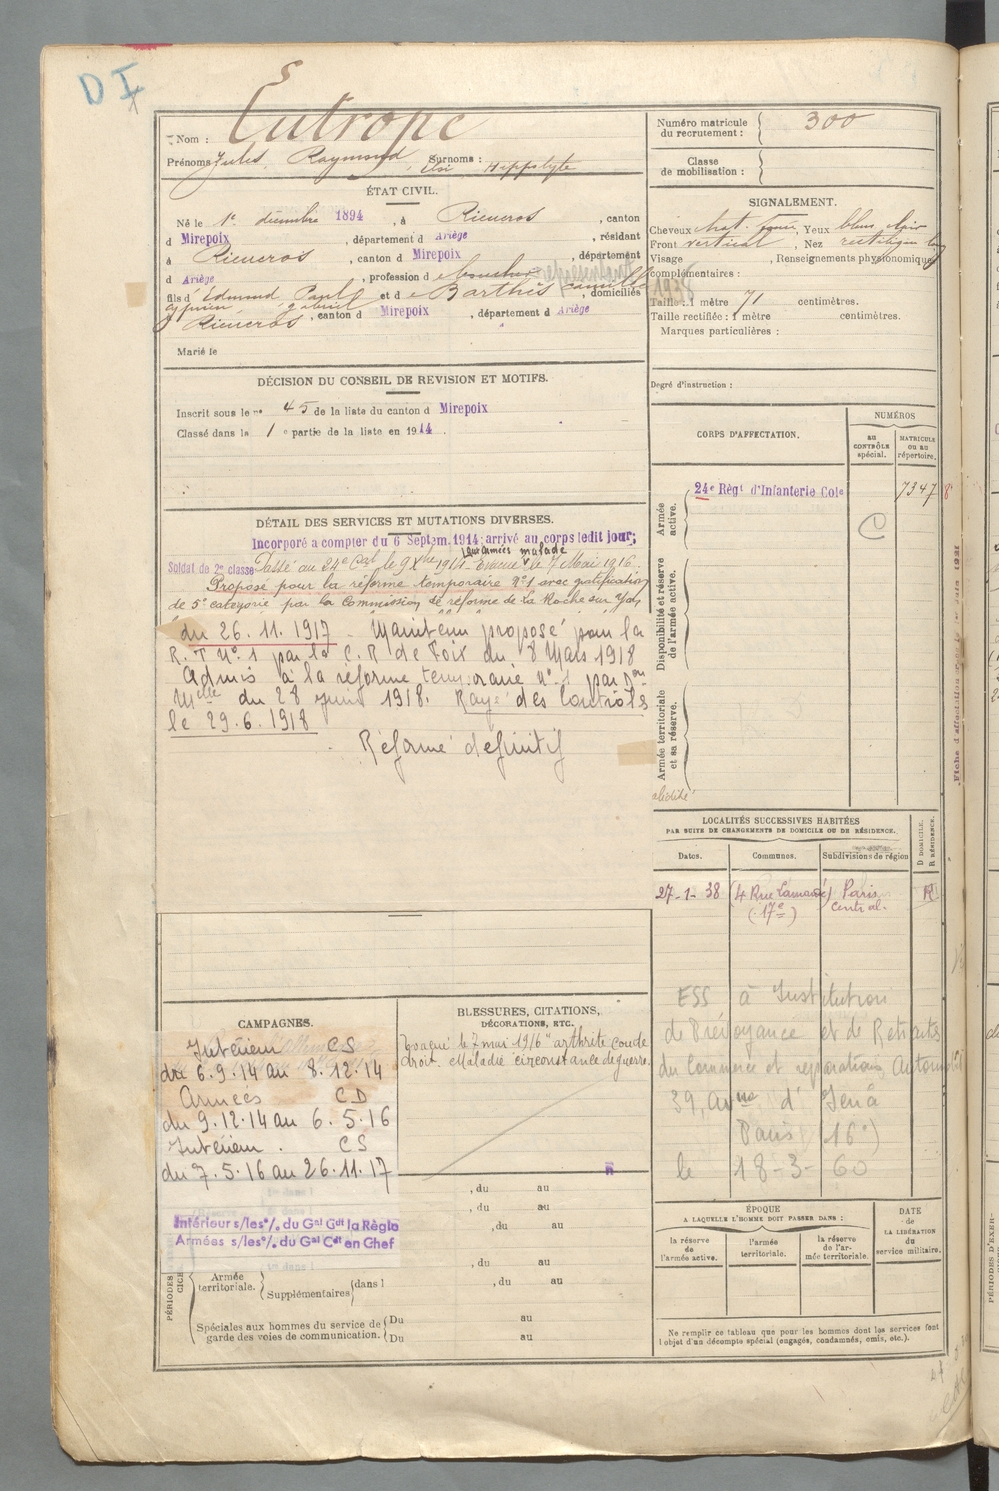 D I
Nom : Eutrope
Prénoms : Jules, Raymond, Surnoms : Eloi Hippolyte
ÉTAT CIVIL.
Né le 1er décembre 1894, à Rieucros, canton
d Mirepoix, département d Ariège, résidant
à Rieucros, canton d Mirepoix, département
d Ariège, profession d e boucher
fils d'Edmond Paul cyprien gabriel et d e Barthès camille, domiciliés
à Rieucros, canton d Mirepoix, département d Ariège
Marié le
DÉCISION DU CONSEIL DE REVISION ET MOTIFS.
Inscrit sous le n° 45 de la liste du canton d Mirepoix
Classé dans la 1 e partie de la liste en 1914.
DÉTAIL DES SERVICES ET MUTATIONS DIVERSES.
Incorporé a compter du 6 Septem. 1914; arrivé au corps ledit jour;
Soldat de 2e classe. Passé au 24e Cal le 9 Xbre 1914 aux armées. Evacué malade le 7 Mai 1916.
Proposé pour la réforme temporaire N°1 avec gratification
de 5e catégorie par la Commission de réforme de la Roche sur Yon
du 26.11.1917 - Maintenu proposé pour la
R.T N°1 par la C.R de Foix du 8 Mars 1918
Admis à la réforme temporaire n°1 par Don
Mlle du 28 juin 1918. Rayé des Contrôles
le 29.6.1918
Réformé définitif
CAMPAGNES.
Intérieur CS
du 6.9.14 au 8.12.14
Armées CD
du 9.12.14 au 6.5.16
Intérieur. CS
du 7.5.16 au 26.11.17
Intérieur s/les °/. du Gal Cdt la Régio
Armées s/les °/. du Gal Cdt en Chef
BLESSURES, CITATIONS,
DÉCORATIONS, ETC.
Evacué le 7 mai 1916 "arthrite coude
droit. Maladie circonstance de guerre.
, du au
, du au
, du au
, du au
PÉRIODES
Armée
territoriale. Supplémentaires dans l , du au
Spéciales aux hommes du service de Du au
garde des voies de communication. Du au
Numéro matricule
du recrutement : 300
Classe
de mobilisation :
SIGNALEMENT.
Cheveux chat. foncé, Yeux bleu clair
Front vertical, Nez rectiligne long
Visage , Renseignements physionomiques
complémentaires :
Taille : 1 mètre 71 centimètres.
Taille rectifiée : 1 mètre centimètres.
Marques particulières :
Degré d'instruction :
CORPS D'AFFECTATION.
NUMÉROS
AU CONTRÔLE spécial.
MATRICULE OU AU répertoire.
Armée active.
24e Régt d'Infanterie Cole
7347
C
Disponibilité et réserve de l'armée active.
Armée territoriale et sa réserve.
LOCALITÉS SUCCESSIVES HABITÉES
PAR SUITE DE CHANGEMENTS DE DOMICILE OU DE RÉSIDENCE.
Dates. Communes. Subdivisions de région D DOMICILE. R RÉSIDENCE.
27-1-38 (4 Rue Lamarck) Paris R
(17e) central.
ESS à Institution
de Prévoyance et de Retraites
du Commerce et réparations Automobile
39, Avnue d'Iéna
Paris (16e)
le 18-3-60
ÉPOQUE
A LAQUELLE L'HOMME DOIT PASSER DANS :
la réserve de l'armée active.
l'armée territoriale.
la réserve de l'armée territoriale.
DATE de LA LIBÉRATION du service militaire.
Ne remplir ce tableau que pour les hommes dont les services font
l'objet d'un décompte spécial (engagés, condamnés, omis, etc.).